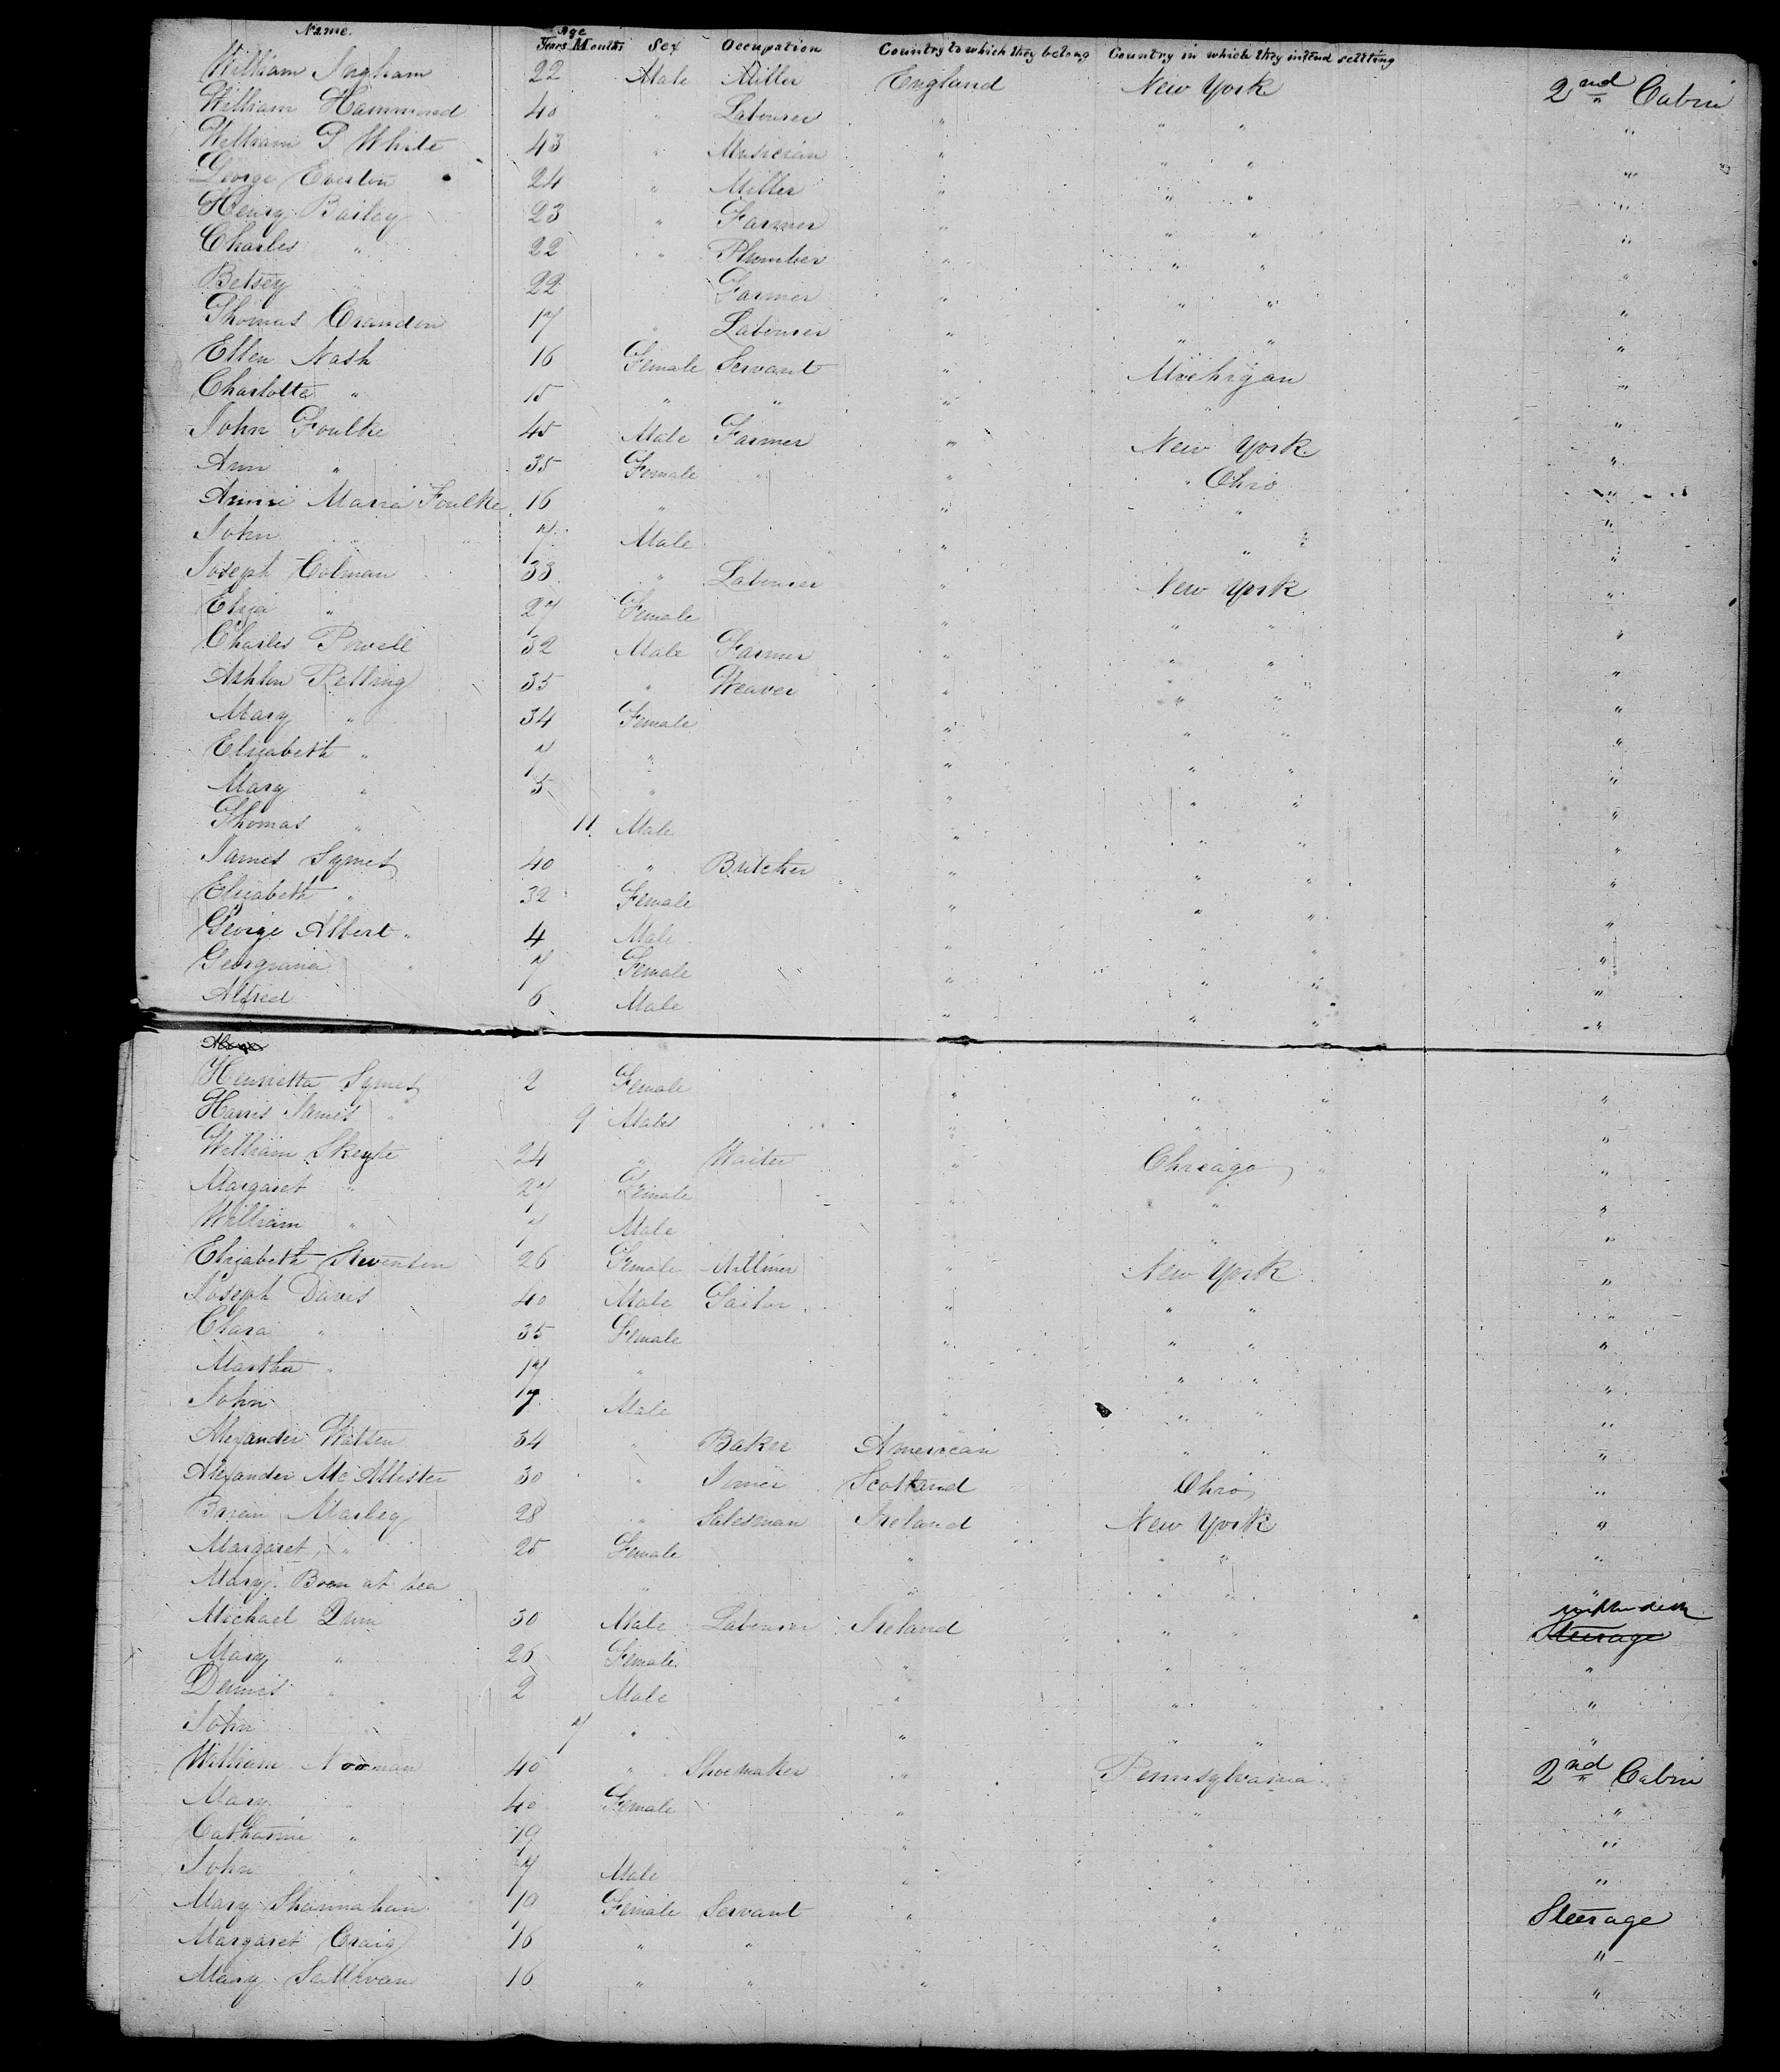 Name. Age Years Months Sex Occupation Country to which they belong Country in which they intend settling
William Ingham 22 Male Miller England New York 2nd Cabin
William Hammond 40 " Labourer " " " "
William P White 43 " Musician " " " "
George Everton 24 " Miller " " " "
Henry Bailey 23 " Farmer " " " "
Charles " 22 " Plumber " " " "
Betsey " 22 Farmer " " " "
Thomas Crandon 17 " Labourer " " " "
Ellen Nash 16 Female Servant " Michigan "
Charlotte " 15 " " " " "
John Foulke 45 Male Farmer " New York "
Ann " 35 Female " " " Ohio "
Annie Maria Foulke 16 " " " "
John " 7 Male " " "
Joseph Colman 33 " Labourer " New York "
Eliza " 27 Female " " " "
Charles Powell 32 Male Farmer " " " "
Ashton Pelling 35 " Weaver " " " "
Mary " 34 Female " " " "
Elizabeth " 7 " " " " "
Mary " 5 " " " " "
Thomas " 11 Male " " " "
James Symes 40 " Butcher " " " "
Elizabeth " 32 Female " " " "
George Albert " 4 Male " " " "
Georgiana " 7 Female " " " "
Alfred 6 Male " " " "
Henrietta Symes 2 Female " " " "
Harris James " 9 Males " " " "
William Skeyte 24 " Waiter " Chicago " "
Margaret " 27 Female " " "
William " 7 Male " " "
Elizabeth Stevenson 26 Female Milliner " New York "
Joseph Davis 40 Male Tailor " " " "
Clara " 35 Female " " " "
Martha " 17 " " " " "
John 7 Male " " " "
Alexander Watson 34 " Baker American " " "
Alexander McAllister 30 " Joiner Scotland Ohio "
Brian Marley 28 " Salesman Ireland New York "
Margaret " 25 Female " " " "
Mary Born at sea " " " " "
Michael Dunn 30 Male Labourer Ireland " " Steerage
Mary " 26 Female " " " "
Dennis " 2 Male " " " "
John 7 " " " " "
William Norman 40 " Shoemaker " Pennsylvania 2nd Cabin
Mary " 40 Female " " "
Catharine " 19 " " "
John " 7 Male " " "
Mary Shannahan 19 Female Servant " " Steerage
Margaret Craig 16 " " " " "
Mary Sullivan 16 " " " " "